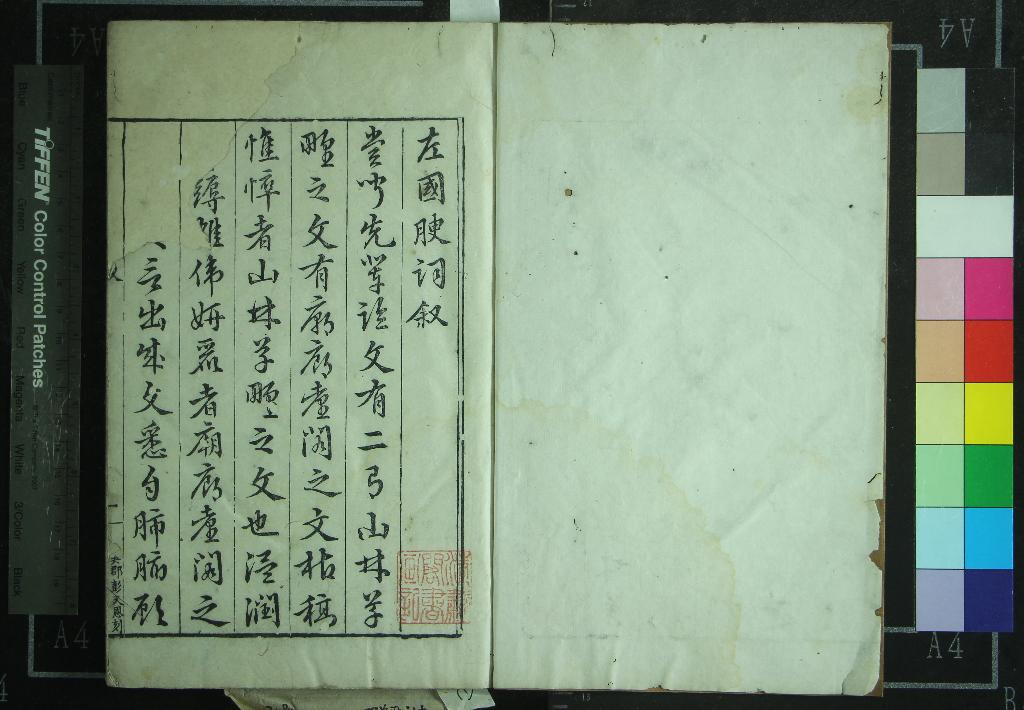 左國腴詞叙
嘗聞先輩論文有二有山林草
野之文有廟廊臺閣之文枯槁
憔悴者山林草野之文也溫潤
縟雄偉妍麗者廟廊臺閣之
言出成文悉自肺腑顧
吳郡彭天恩刻
TIFFEN Color Control Patches
Blue Cyan Green Yellow Red Magenta White 3/Color Black
A4
A4
A4
A4